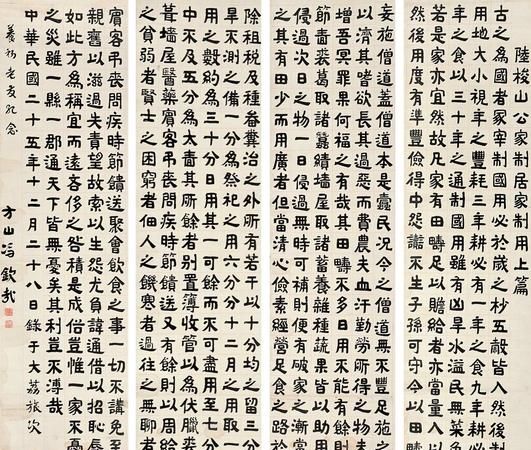 陸梭山公家制居家制用上篇
古之為國者冢宰制國用必於歲之杪五穀皆入然後制
用地大小視年之豐耗三年耕必有一年之食九年耕必
年之食以三十年之通制國用雖有凶旱水溢民無菜色
若是家亦宜然故凡家有田疇足以贍給者亦當量入以
然後用度有準豐儉得中怨讟不生子孫可守今以田疇
妄施盖僧道本是蠹民況今之僧道無不豐足施之
以濟其嗜欲長其過惡而費農夫血汗勤勞所得之物未
增吾冥罪果何福之有哉其田疇不多日用不能有餘
節嗇裘葛取諸蠶績墻屋取諸蓄養雜種蔬果皆以助用
侵過次日之物一日侵過無時可補則便有破家之漸當
之其有田少而用廣者但當清心儉素經營足食之路於
除租稅及種盎糞治之外所有若干以十分均之留三分
旱不測之備一分為祭祀之用六分分十二月之用取一
用之數約為三十分日用其一可餘而不可盡用至七分
中不及五分為太嗇其所餘者別置簿收管以為伏臘裘
葺墻屋醫藥賓客吊喪問疾時節饋送又有餘則以周給
之貧弱者賢士之困窮者佃人之饑寒者過往之無聊者
賓客吊喪問疾時節饋送聚會飲食之事一切不講免至
親舊以滋過失責望故索以生怨尤負諱通借以招恥辱
如此方為稱宜而遠吝侈之咎積是成俗豈惟一家不憂
之災雖一縣一郡通天下皆無憂矣其利豈不溥哉
中華民國二十五年十二月二十八日錄于大荔旅次
老友紀念
方山馮欽哉